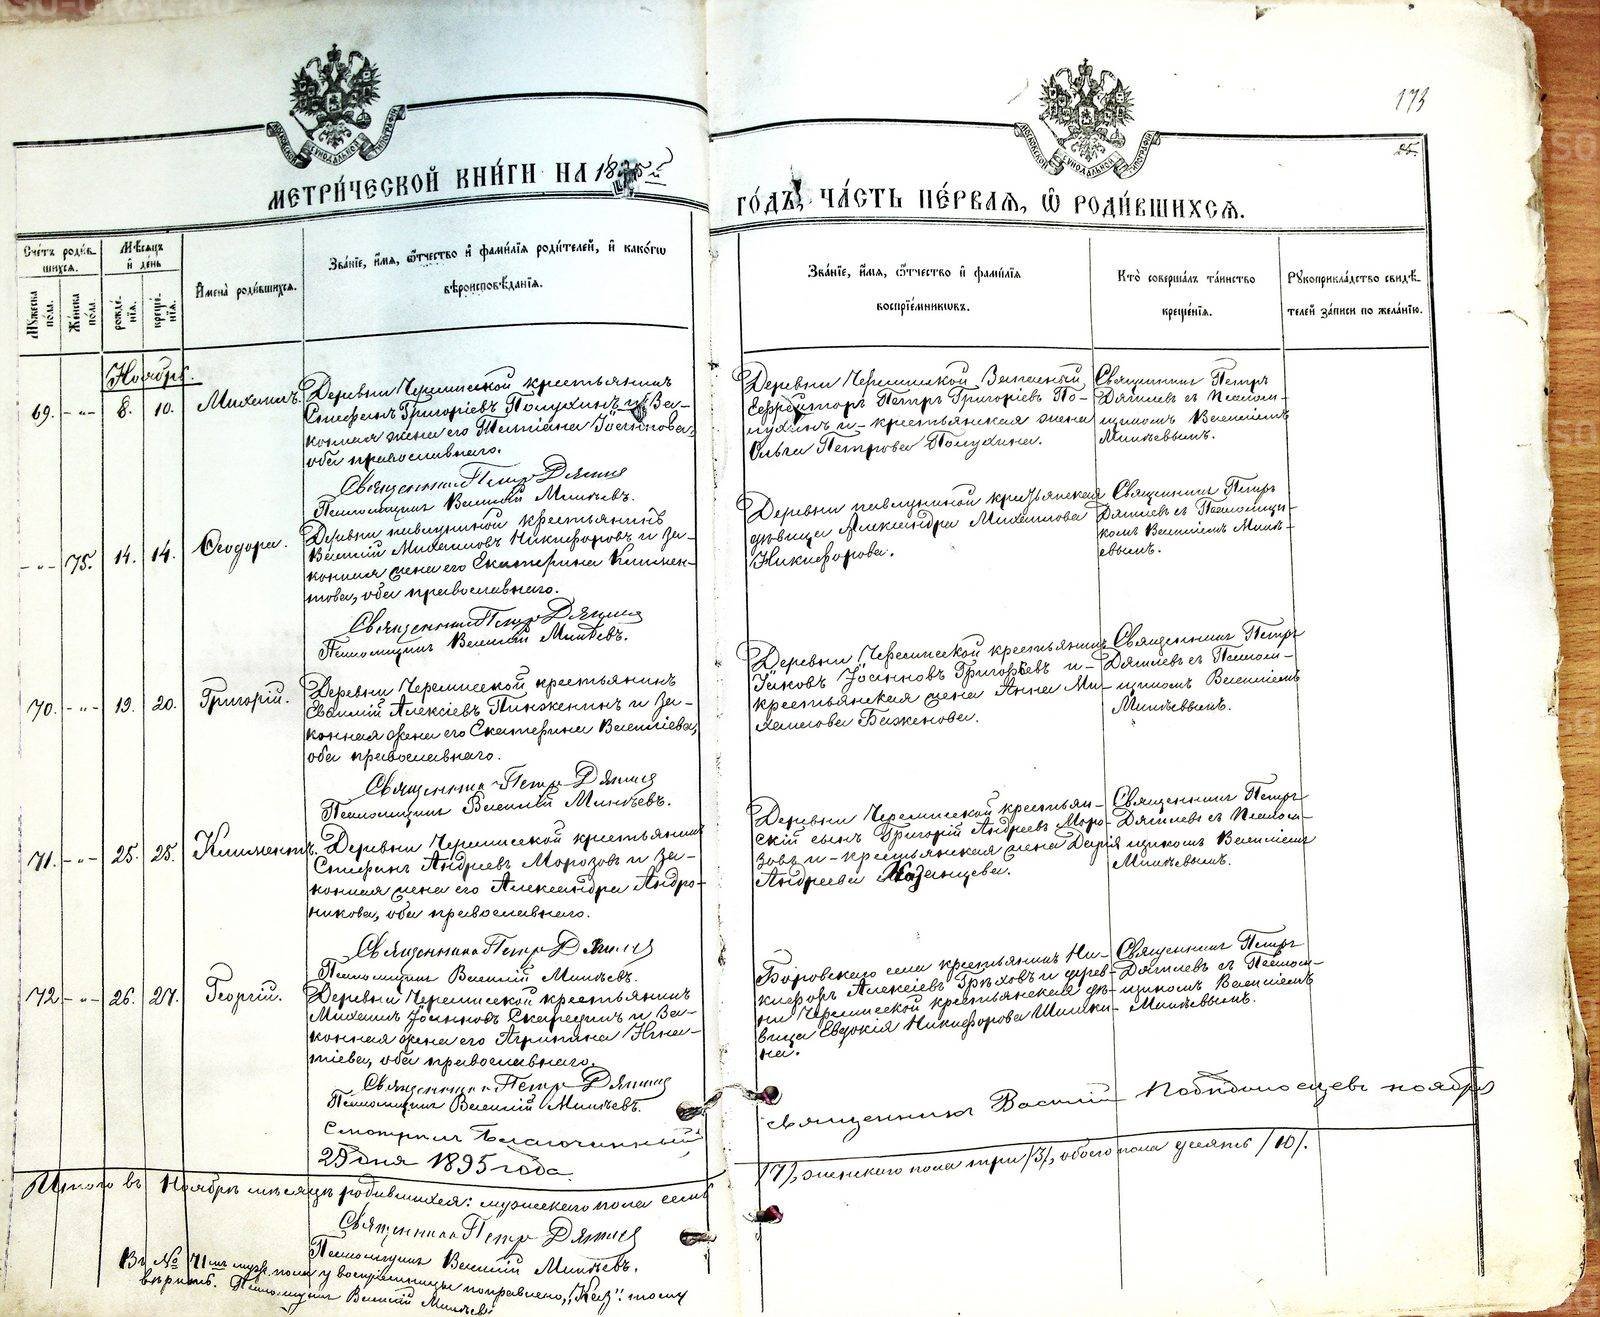 173
25.
МОСКОВСКОЙ СѴНОДАЛЬНОЙ ТИПОГРАФІИ
МОСКОВСКОЙ СѴНОДАЛЬНОЙ ТИПОГРАФІИ
МЕТРИ́ЧЕСКОЙ КНИ́ГИ НА 1895 г.
ГО́ДЪ, ЧА́СТЬ ПЕ́РВАЯ, Ѽ РОДИ́ВШИХСЯ.
Сче́тъ роди́в-
шихся.
Мꙋ́жеска по́ла.
Же́нска по́ла.
Мѣ́сяцъ и҆ де́нь
рожде́нїя.
креще́нїя.
И҆мена̀ роди́вшихся.
Зва́нїе, и҆́мя, ѻ҆́тчество и҆ фами́лїя роди́телей, и҆ како́гѡ
вѣроисповѣ́данїя.
Зва́нїе, и҆́мя, ѻ҆́тчество и҆ фами́лїя
воспрїе́мникѡвъ.
Кто̀ соверша́лъ та́инство
креще́нїя.
Рꙋкоприкла́дство свидѣ́-
телей за́писи по жела́нїю.
Ноябрь.
69. - „ - 8. 10. Михаилъ.
Деревни Черемисской крестьянинъ
Стефанъ Григоріевъ Полухинъ и За-
конная жена его Татіана Іоаннова,
оба православнаго.
Священникъ Петръ Дягилевъ
Псаломщикъ Василій Минѣевъ.
Деревни Черемисской Запасный
Ефрейторъ Петръ Григоріевъ По-
лухинъ и - крестьянская жена
Ольга Петрова Полухина.
Священникъ Петръ
Дягилевъ съ Псалом-
щикомъ Василіемъ
Минѣевымъ.
- „ - 75. 14. 14. Ѳеодора.
крестьянинъ
Василій Михаиловъ Никифоровъ и за-
конная жена его Екатерина Климен-
това, оба православнаго.
Священникъ Петръ Дягилевъ
Псаломщикъ Василій Минѣевъ.
Деревни крестьянская
дѣвица Александра Михаилова
Никифорова.
Священникъ Петръ
Дягилевъ съ Псаломщи-
комъ Василіемъ Минѣ-
евымъ.
70. - „ - 19. 20. Григорій.
Деревни Черемисской крестьянинъ
Евѳимій Алексіевъ Пинженинъ и за-
конная жена его Екатерина Василіева,
оба православнаго.
Священникъ Петръ Дягилевъ
Псаломщикъ Василій Минѣевъ.
Деревни Черемисской крестьянинъ
Іаковъ Іоанновъ Григорьевъ и -
крестьянская жена Анна Ми-
хаилова Баженова.
Священникъ Петръ
Дягилевъ съ Псалом-
щикомъ Василіемъ
Минѣевымъ.
71. - „ - 25. 25. Климентъ.
Деревни Черемисской крестьянинъ
Стефанъ Андреевъ Морозовъ и за-
конная жена его Александра Андро-
никова, оба православнаго.
Священникъ Петръ Дягилевъ
Псаломщикъ Василій Минѣевъ.
Деревни Черемисской крестьян-
скій сынъ Григорій Андреевъ Моро-
зовъ и - крестьянская жена Дарія
Андреева Казанцева.
Священникъ Петръ
Дягилевъ съ Псалом-
щикомъ Василіемъ
Минѣевымъ.
172 - „ - 26. 27. Георгій.
Деревни Черемисской крестьянинъ
Михаилъ Іоанновъ Скарединъ и за-
конная жена его Агрипина Игна-
тіева, оба православнаго.
Священникъ Петръ Дягилевъ
Псаломщикъ Василій Минѣевъ.
Боровскаго села крестьянинъ Ни-
кифоръ Алексіевъ Грѣховъ и дерев-
ни Черемисской крестьянская дѣ-
вица Евдокія Никифорова Шишки-
на.
Священникъ Петръ
Дягилевъ съ Псалом-
щикомъ Василіемъ
Минѣевымъ.
Смотрилъ Благочинный
священникъ Василій Побѣдоносцевъ ноября
29 дня 1895 года.
Итого въ Ноябрѣ мѣсяцѣ родившихся: мужескаго пола семь
/7/, женскаго пола три /3/, обоего пола десять /10/.
Священникъ Петръ Дягилевъ
Псаломщикъ Василій Минѣевъ.
Въ № 71мъ муж. пола у воспріемницы поправлено, „Каз“. тому
вѣрить. Псаломщикъ Василій Минѣевъ